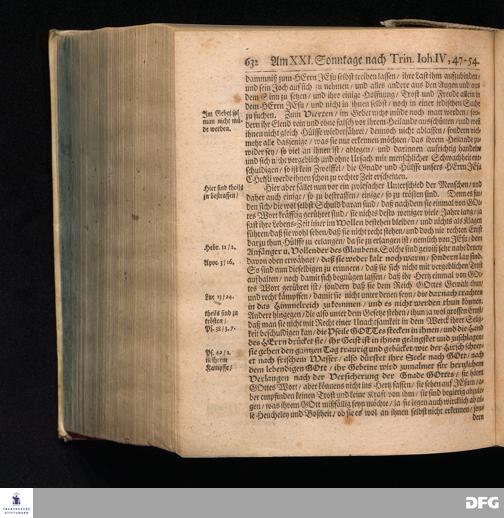 632 Am XXI. Sonntage nach Trin. Joh. IV, 47-54.
damnniß zum HErrn JEsu selbst treiben lassen / ihre Last ihm aufzubinden /
und sein Joch auf sich zu nehmen / und alles andere aus den Augen und aus
dem Sinn zu setzen / und ihre einige Hoffnung / Trost und Freude allein in
dem HErrn JEsu / und nicht in ihnen selbst / noch in einer irdischen Sache
zu suchen. Zum Vierzen / im Gebet nicht müde noch matt werden / son-
Im Gebet soll
man nicht mü-
de werden.
dern ihr Elend rein und ohne falsch vor ihrem Heilande ausschütten / und ob
ihnen nicht gleich Hülffe wiederfähret / dennoch nicht ablassen / sondern viel-
mehr alle dasjenige / was sie nur erkennen möchten / das ihrem Heilande zu
wider sey / so viel an ihnen ist / ablegen / und darinnen aufrichtig handeln
und sich nicht vergeblich und ohne Ursach mit menschlicher Schwachheit ent-
schuldigen / so ist kein Zweiffel / die Gnade und Hülffe unsers HErrn JEsu
Christi werde ihnen schon zu rechter Zeit erscheinen.
Hier sind theils
zu bestraffen /
Hier aber fället nun vor ein zwiefacher Unterschied der Menschen / und
daher auch einige / so zu bestraffen / einige / so zu trösten sind. Denn es fin-
den sich / die wol selbst Schuld daran sind / daß nachdem sie einmal von GOt-
tes Wort kräfftig gerühret sind / sie nichts desto weniger viele Jahre lang / ja
fast ihre Lebens-Zeit immer im Wollen bestehen bleiben / und nichts als Klagen
führen / daß sie wohl sehen / daß sie nicht recht stehen / und doch nie rechten Ernst
darzu thun / Hülffe zu erlangen / da sie zu erlangen ist / nemlich von JEsu / dem
Hebr. 12 / 2.
Anfänger u. Vollender des Glaubens. Solche sind gewiß sehr nahe denen /
Apoc. 3 / 16.
davon oben erwähnet / daß sie weder kalt noch warm / sondern lau sind.
So sind nun dieselbigen zu erinnern / daß sie sich nicht mit vergeblichen Trost
aufhalten / noch damit sich begnügen lassen / daß ihr Hertz einmal von GOt-
tes Wort gerühret ist / sondern daß sie dem Reich GOttes Gewalt thun
Luc. 13 / 24.
und recht kämpffen / damit sie nicht unter denen seyn / die darnach trachten
in das Himmelreich zukommen / und es nicht werden thun können.
theils sind zu
trösten;
Andere hingegen / die also unter dem Gesetze stehen / thun ja wol grossen Ernst /
daß man sie nicht mit Recht einer Unachtsamkeit in dem Werck ihrer Selig-
keit beschuldigen kan / die Pfeile GOTTes stecken in ihnen / und die Hand
Pf. 38 / 3. 7.
des HErrn drücket sie / ihr Geist ist in ihnen geängstet und zuschlagen /
sie gehen den gantzen Tag traurig und gebücket / wie der Hirsch schrey-
Pf. 42 / 2.
in ihrem
Kampffe /
et nach frischem Wasser / also dürstet ihre Seele nach GOtt / nach
dem lebendigen GOtt / ihr Gebeine wird zunmalmet für hertzlichem
Verlangen nach der Versicherung der Gnade GOttes / sie hören
GOttes Wort / aber können nicht ins Hertz fassen / sie sehen auf JEsum / a-
ber empfinden keinen Trost und keine Kraft von ihm / sie sind begierig abzule-
gen / was ihrem GOtt mißfällig seyn möchte / ja sie legen auch wircklich ab al-
le Heucheley und Boßheit / ob sie es wol an ihnen selbst nicht erkennen / son-
dern
FRANCKESCHE
STIFTUNGEN
DFG